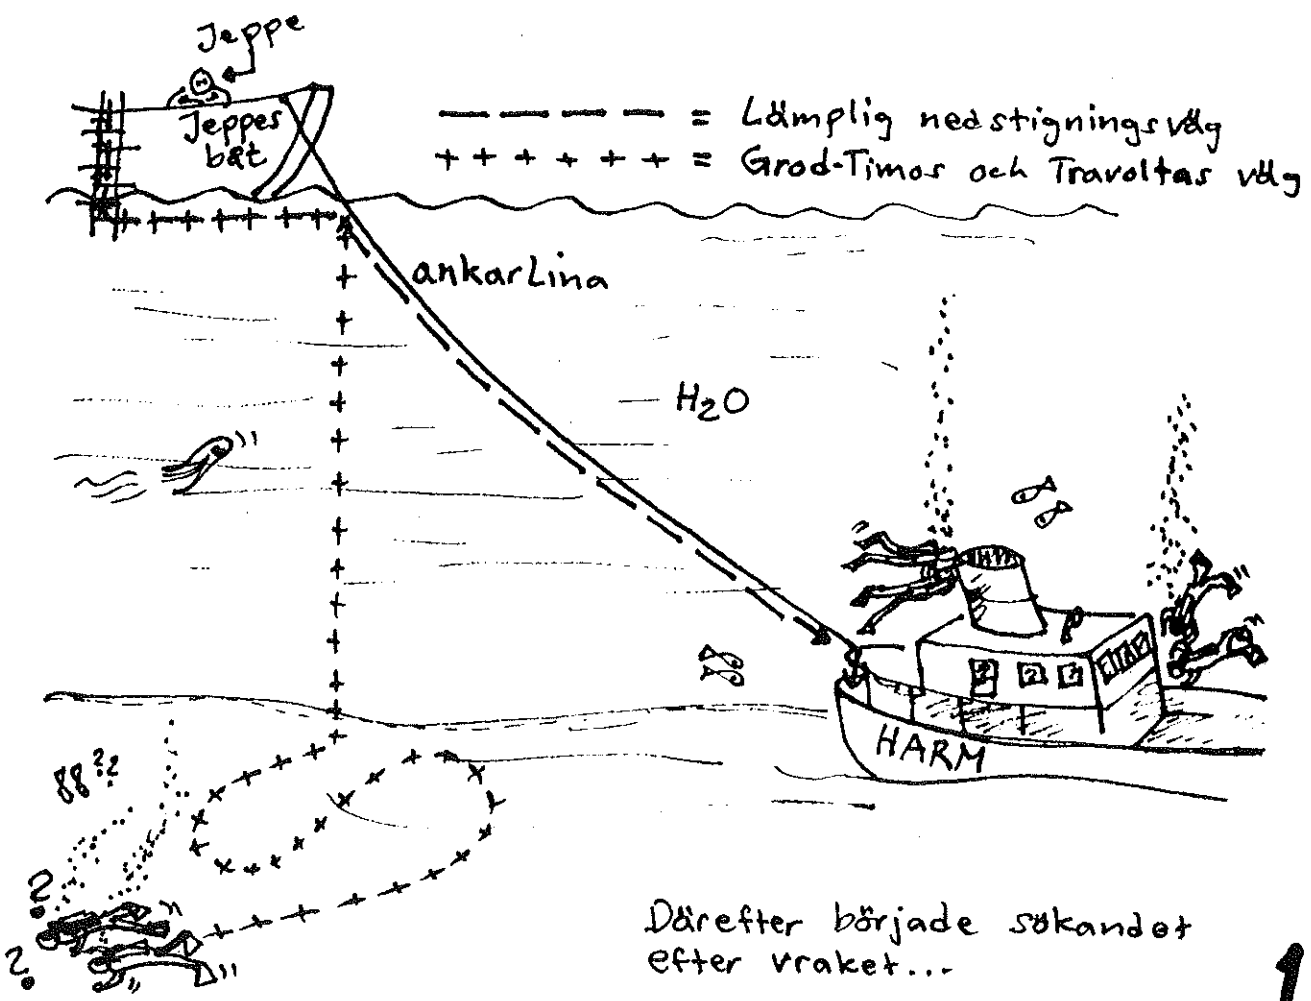 Jeppe
Jeppes
båt
= Lämplig nedstigningsväg
= Grod-Timos och Travoltas väg
ankarlina
H2O
HARM
88??
?
?
Därefter började sökandet
efter vraket...
1